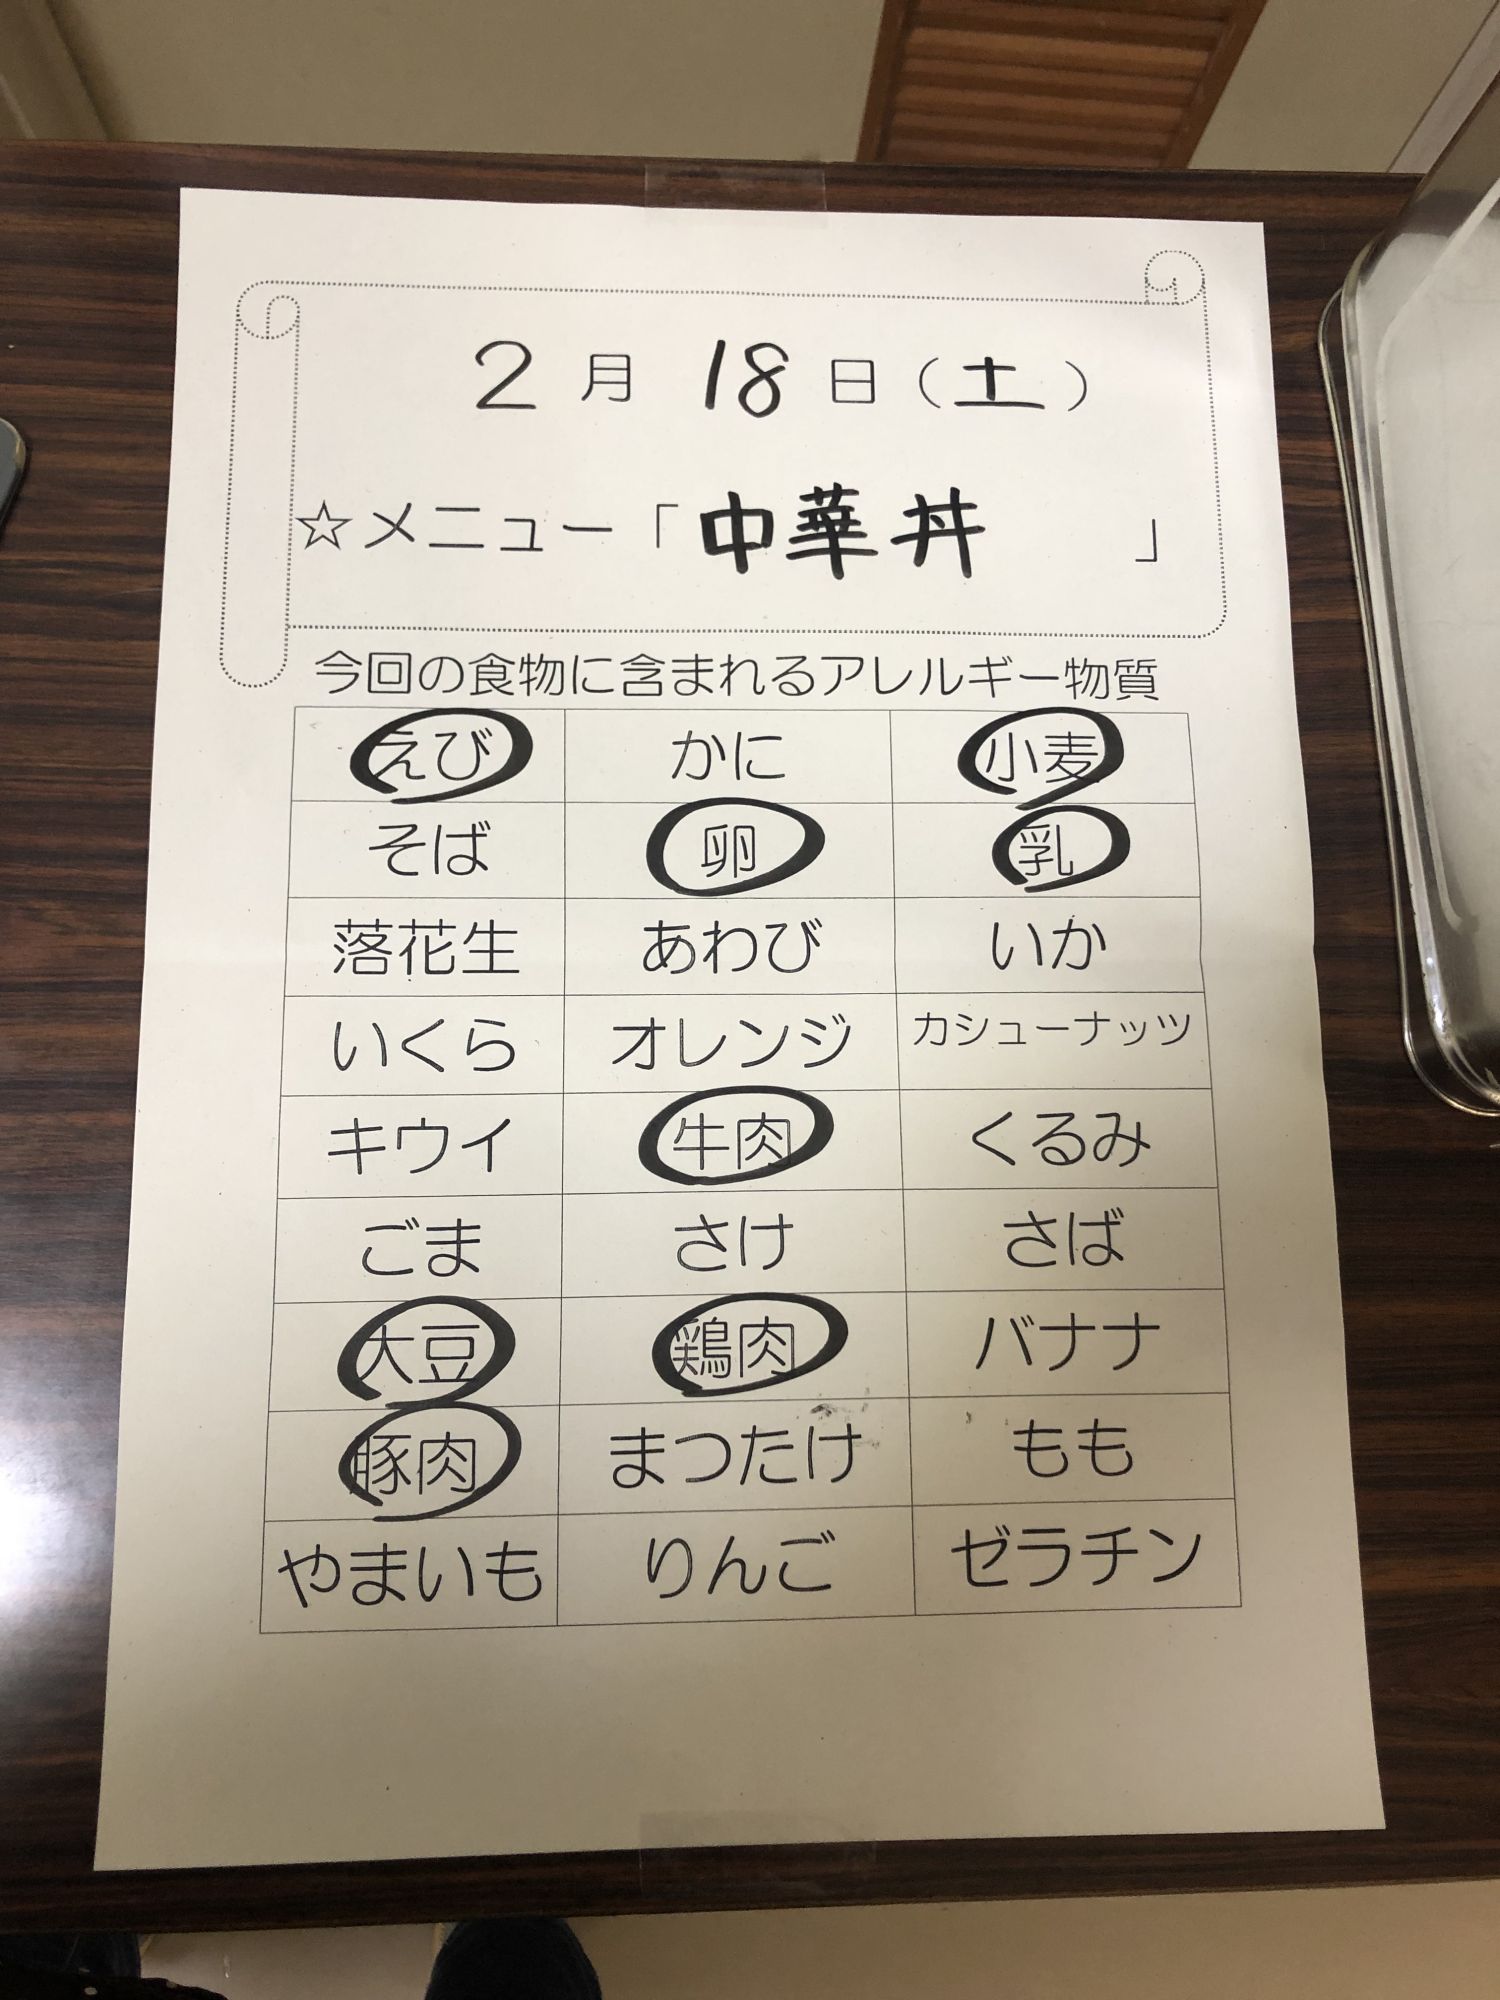 2月18日（土）
☆メニュー「中華丼」
今回の食物に含まれるアレルギー物質
えび かに 小麦
そば 卵 乳
落花生 あわび いか
いくら オレンジ カシューナッツ
キウイ 牛肉 くるみ
ごま さけ さば
大豆 鶏肉 バナナ
豚肉 まつたけ もも
やまいも りんご ゼラチン